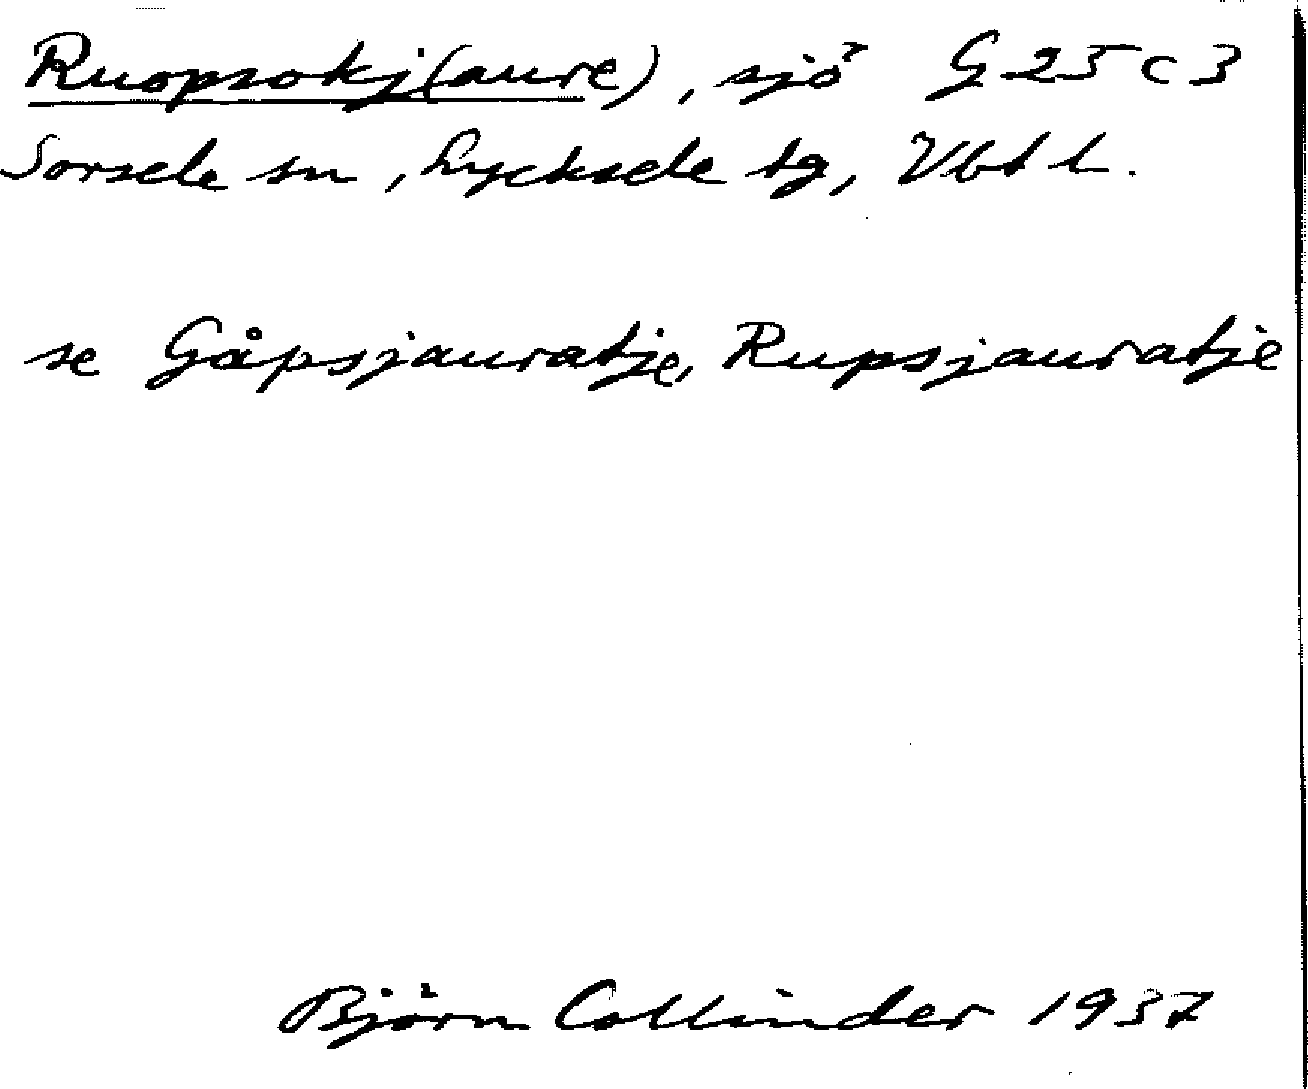 Ruopsokj(aure), sjö G 25 c 3
Sorsele sn, Lycksele tg, Vbt l.
se Gåpsjauratje, Rupsjauratje
Björn Collinder 1937